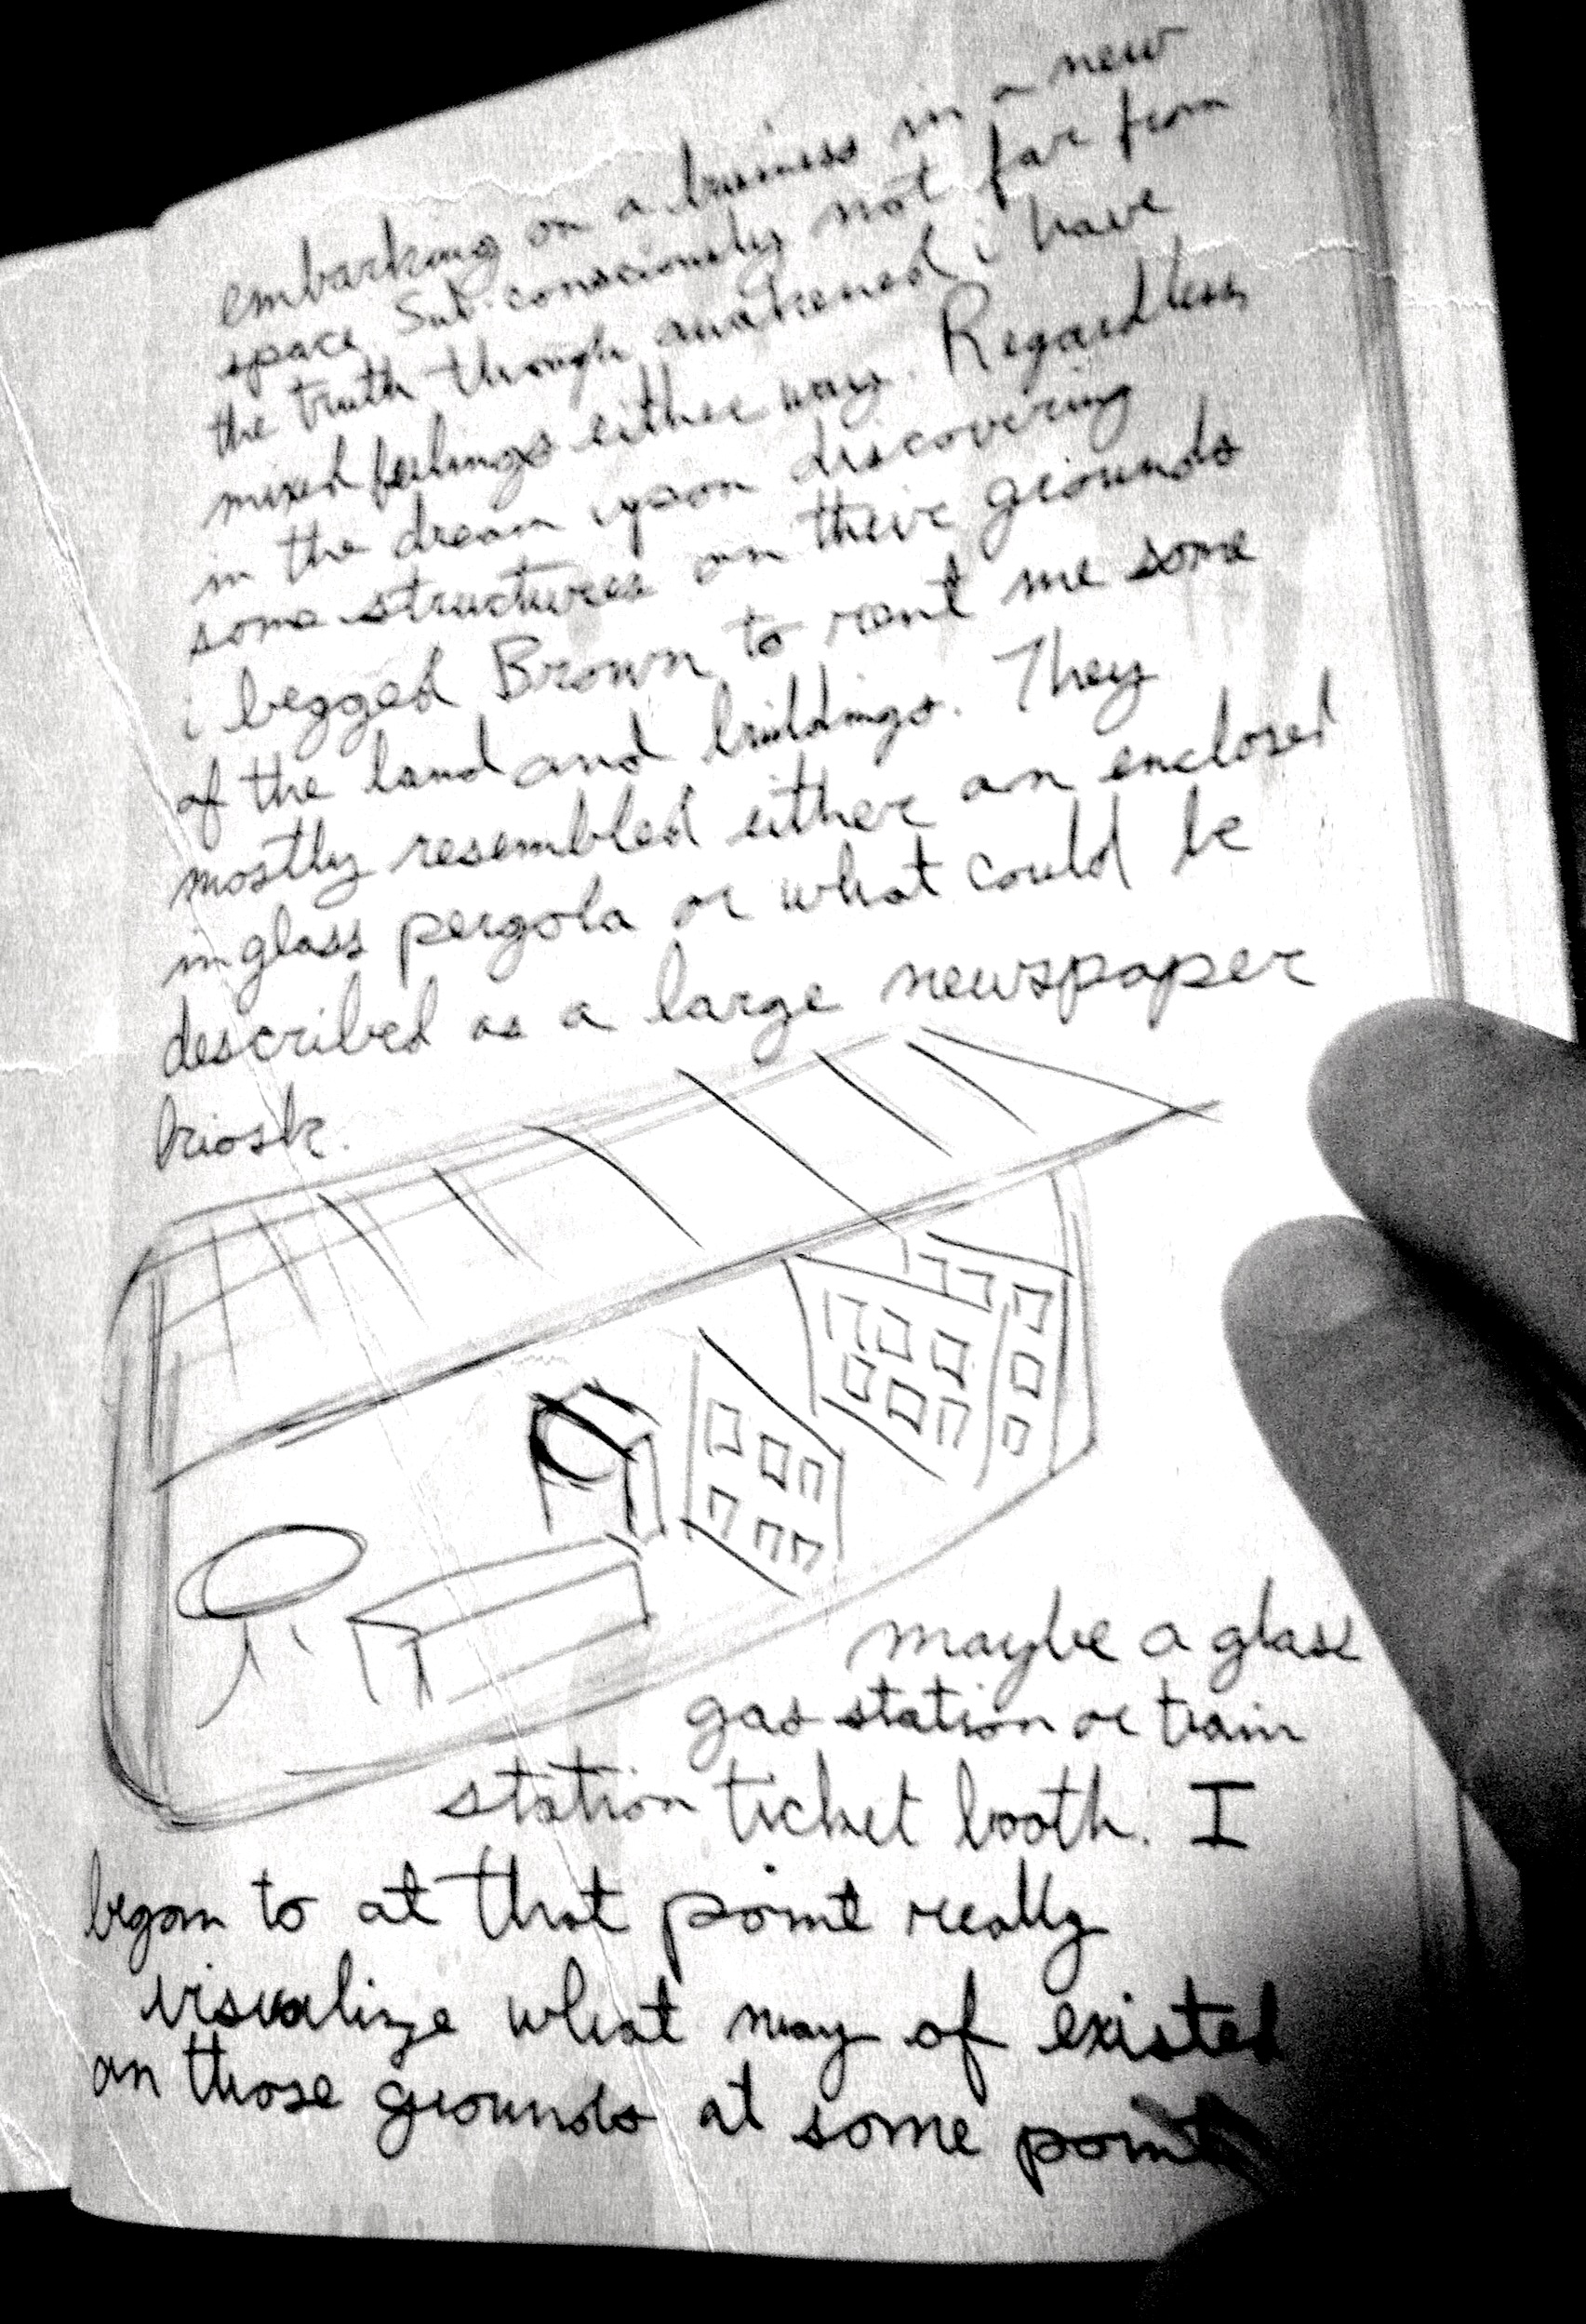 embarking on a business in a new
space. Sub-consciously not far from
the truth though awakened i have
mixed feelings either way. Regardless
in the dream upon discovering
some structures on their grounds
i begged Brown to rent me some
of the land and buildings. They
mostly resembled either an enclosed
in glass pergola or what could be
described as a large newspaper
kiosk.
maybe a glass
gas station or train
station ticket booth. I
began to at that point really
visualize what may of existed
on those grounds at some point